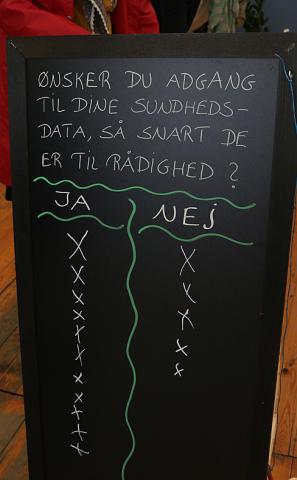 ØNSKER DU ADGANG
TIL DINE SUNDHEDS-
DATA, SÅ SNART DE
ER TIL RÅDIGHED ?
JA NEJ
X X
X X
X X
X X
X X
X
X
X
X
X